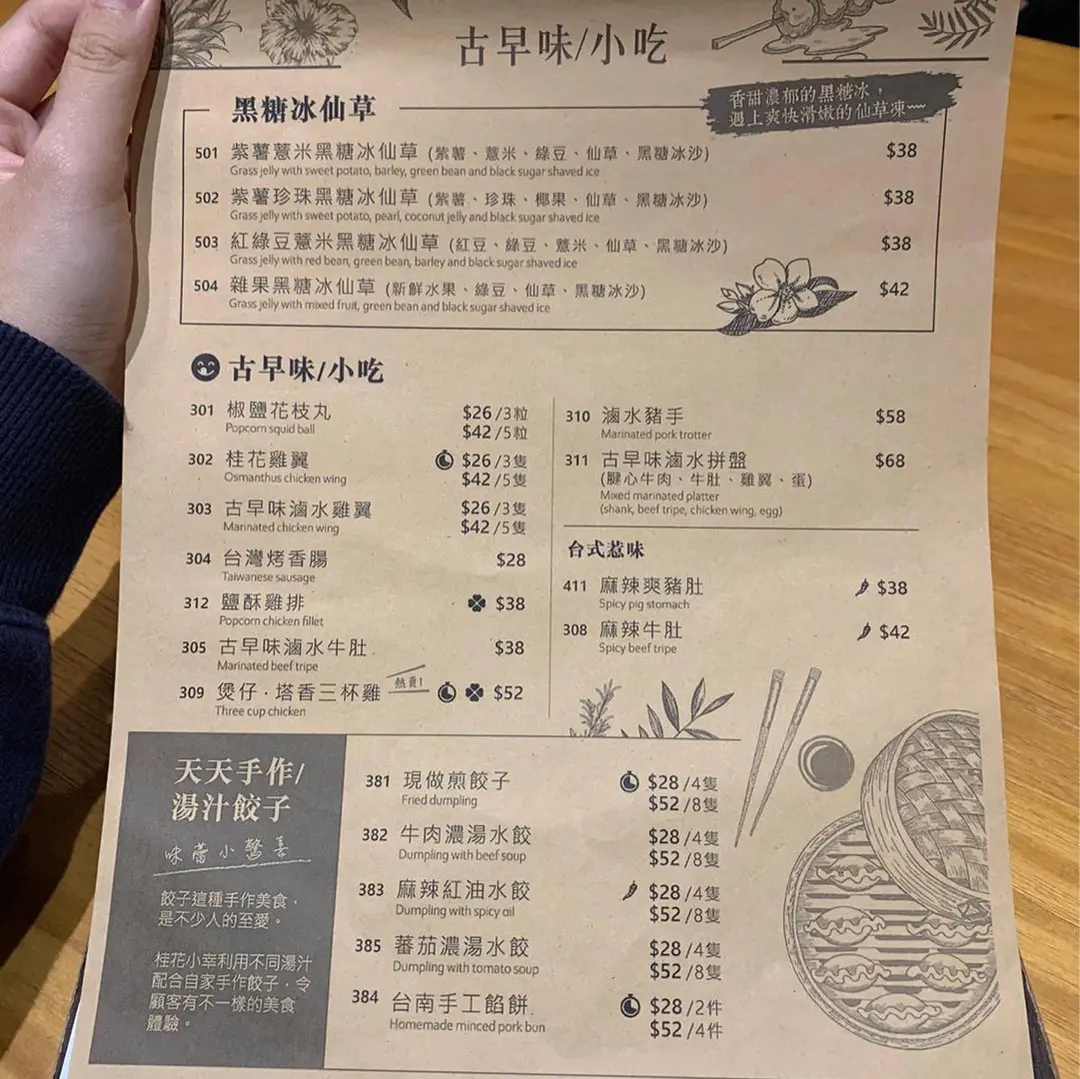 古早味/小吃
黑糖冰仙草
香甜濃郁的黑糖冰，
遇上爽快滑嫩的仙草凍~~
501 紫薯薏米黑糖冰仙草 (紫薯、薏米、綠豆、仙草、黑糖冰沙) $38
Grass jelly with sweet potato, barley, green bean and black sugar shaved ice
502 紫薯珍珠黑糖冰仙草 (紫薯、珍珠、椰果、仙草、黑糖冰沙) $38
Grass jelly with sweet potato, pearl, coconut jelly and black sugar shaved ice
503 紅綠豆薏米黑糖冰仙草 (紅豆、綠豆、薏米、仙草、黑糖冰沙) $38
Grass jelly with red bean, green bean, barley and black sugar shaved ice
504 雜果黑糖冰仙草 (新鮮水果、綠豆、仙草、黑糖冰沙) $42
Grass jelly with mixed fruit, green bean and black sugar shaved ice
古早味/小吃
301 椒鹽花枝丸 $26/3粒
Popcorn squid ball $42/5粒
302 桂花雞翼 $26/3隻
Osmanthus chicken wing $42/5隻
303 古早味滷水雞翼 $26/3隻
Marinated chicken wing $42/5隻
304 台灣烤香腸 $28
Taiwanese sausage
312 鹽酥雞排 $38
Popcorn chicken fillet
305 古早味滷水牛肚 $38
Marinated beef tripe
309 煲仔·塔香三杯雞 熱賣! $52
Three cup chicken
310 滷水豬手 $58
Marinated pork trotter
311 古早味滷水拼盤 $68
(腱心牛肉、牛肚、雞翼、蛋)
Mixed marinated platter
(shank, beef tripe, chicken wing, egg)
台式惹味
411 麻辣爽豬肚 $38
Spicy pig stomach
308 麻辣牛肚 $42
Spicy beef tripe
天天手作/
湯汁餃子
味蕾小驚喜
餃子這種手作美食，
是不少人的至愛。
桂花小幸利用不同湯汁
配合自家手作餃子，令
顧客有不一樣的美食
體驗。
381 現做煎餃子 $28/4隻
Fried dumpling $52/8隻
382 牛肉濃湯水餃 $28/4隻
Dumpling with beef soup $52/8隻
383 麻辣紅油水餃 $28/4隻
Dumpling with spicy oil $52/8隻
385 蕃茄濃湯水餃 $28/4隻
Dumpling with tomato soup $52/8隻
384 台南手工餡餅 $28/2件
Homemade minced pork bun $52/4件